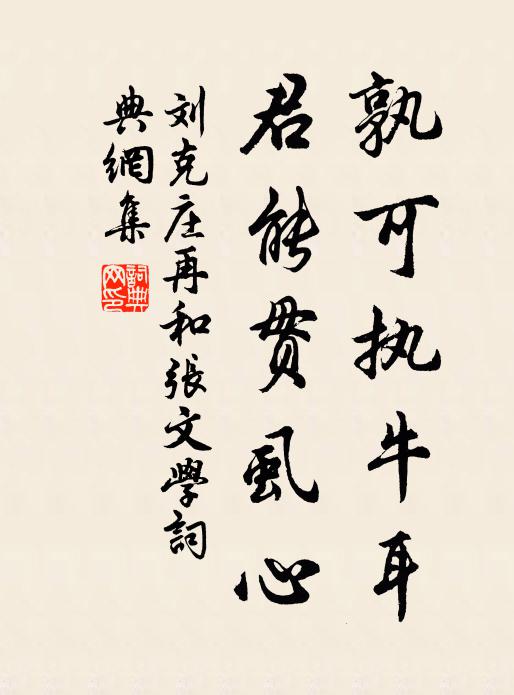 孰可执牛耳
君能贯虱心
刘克庄再和張文學詞
典網集
詞典网印